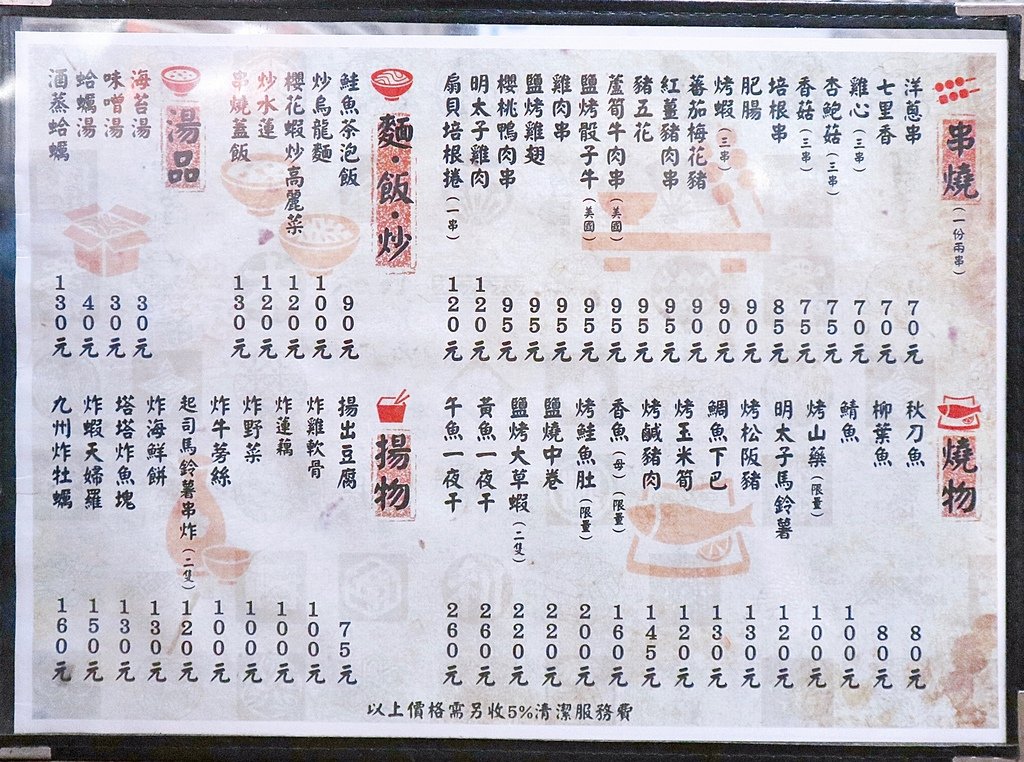 串燒(一份兩串)
洋蔥串 70元
七里香 70元
雞心(三串) 70元
杏鮑菇(三串) 75元
香菇(三串) 75元
培根串 85元
肥腸 90元
烤蝦(三串) 90元
蕃茄梅花豬 90元
紅薑豬肉串 95元
豬五花 95元
蘆筍牛肉串(美國) 95元
鹽烤骰子牛(美國) 95元
雞肉串 95元
鹽烤雞翅 95元
櫻桃鴨肉串 95元
明太子雞肉 120元
扇貝培根捲(一串) 120元
麵·飯·炒
鮭魚茶泡飯 90元
炒烏龍麵 100元
櫻花蝦炒高麗菜 120元
炒水蓮 120元
串燒蓋飯 130元
湯品
海苔湯 30元
味噌湯 30元
蛤蠣湯 40元
酒蒸蛤蠣 130元
燒物
秋刀魚 80元
柳葉魚 80元
鯖魚 100元
烤山藥(限量) 100元
明太子馬鈴薯 120元
烤松阪豬 130元
鯛魚下巴 130元
烤玉米筍 120元
烤鹹豬肉 145元
香魚(母)(限量) 160元
烤鮭魚肚(限量) 200元
鹽燒中卷 220元
鹽烤大草蝦(二隻) 220元
黃魚一夜干 260元
午魚一夜干 260元
揚物
揚出豆腐 75元
炸雞軟骨 100元
炸蓮藕 100元
炸野菜 100元
炸牛蒡絲 100元
起司馬鈴薯串炸(二隻) 120元
炸海鮮餅 130元
塔塔炸魚塊 130元
炸蝦天婦羅 150元
九州炸牡蠣 160元
以上價格需另收5%清潔服務費